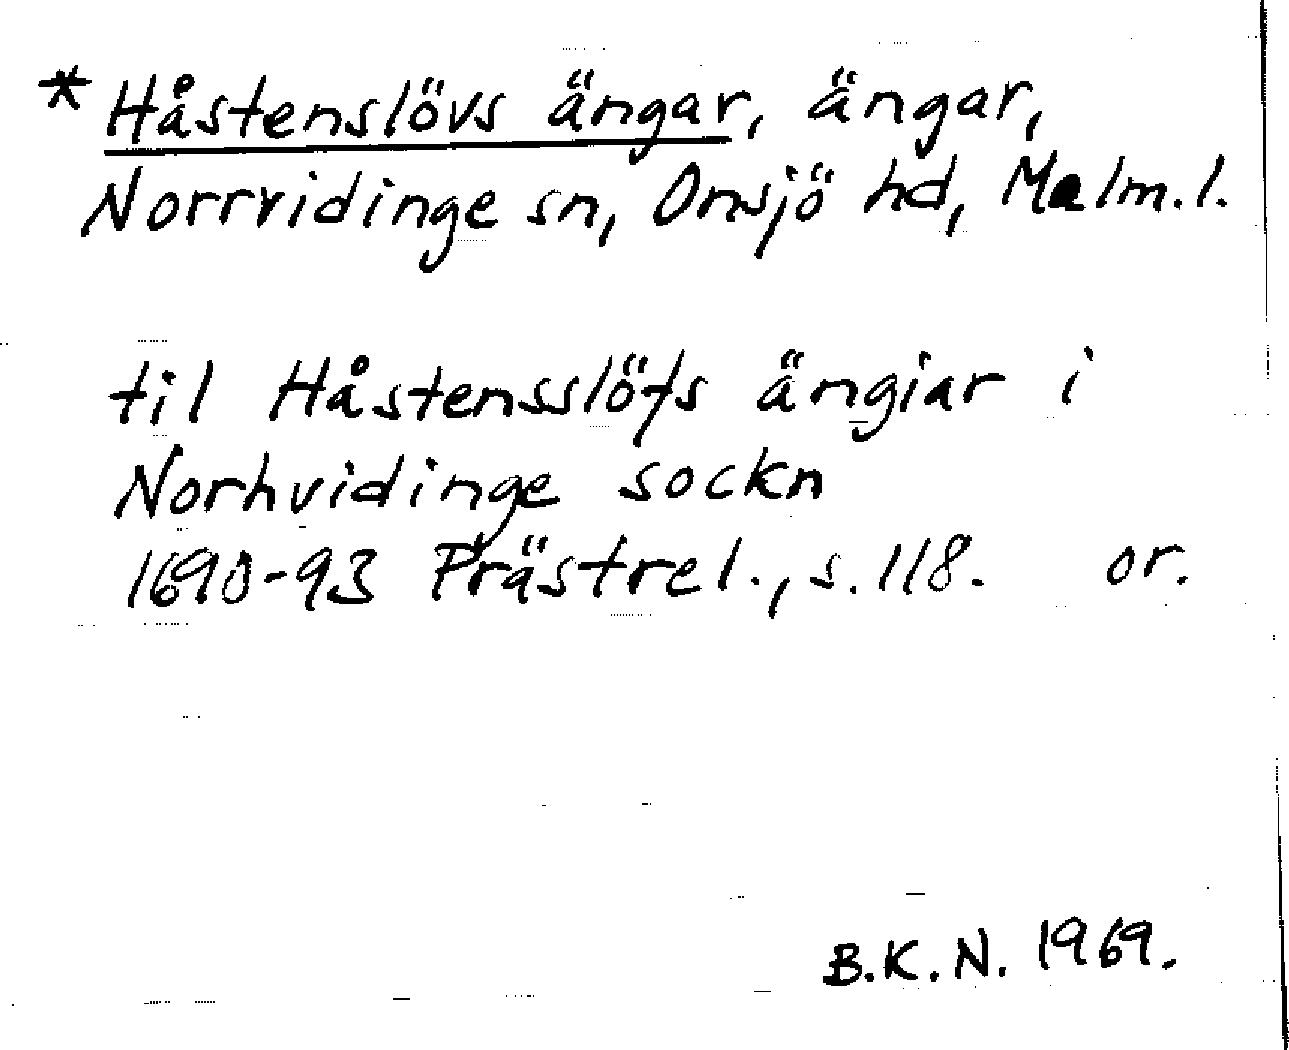 * Håstenslövs ängar, ängar,
Norrvidinge sn, Onsjö hd, Malm. l.
til Håstensslöfs ängiar i
Norhvidinge sockn
1690-93 Prästrel., s. 118. or.
B.K.N. 1969.